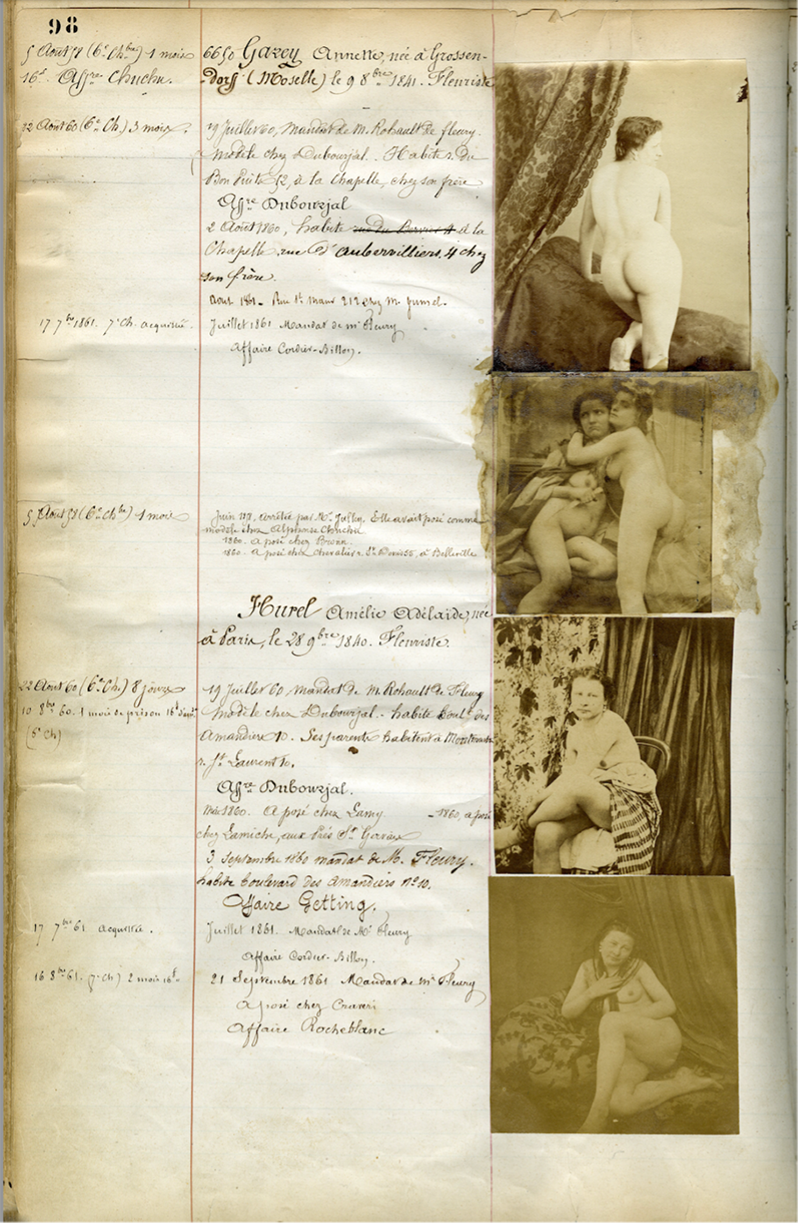 98
5 Août 58 (6e Chbre) 1 mois
16f. Affre Chuchu.
6650 Garey Annette, née à Grossen-
-dorff (Moselle) le 9 8bre 1841. Fleuriste
22 Août 60 (6e Ch.) 3 mois.
19 Juillet 60, Mandat de M. Rohault de fleury.
Modèle chez Dubourjal. Habite r. du
Bon Puits 52, à la Chapelle, chez son frère
Affre Dubourjal
2 Août 1860, habite à la
Chapelle rue d'Aubervilliers, 4 chez
son frère.
Août 1861. Rue St Maur 212 chez M.
17 7bre 1861. 7e Ch. acquittée.
Juillet 1861 Mandat de Mr Fleury
Affaire Cordier-Billon.
5 Août 58 (6e Chbre) 1 mois
Juin arrêtée par Mr. Elle avait posé comme
modèle chez Alphonse Chuchu
1860. a posé chez
1860. a posé chez Chevalier r. à Belleville
Hurel Amélie Adélaïde, née
à Paris, le 28 9bre 1840. Fleuriste.
22 Août 60 (6e Ch.) 8 jours
10 8bre 60. 1 mois de prison 16f
(6e Ch)
19 Juillet 60, mandat de M. Rohault de Fleury
Modèle chez Dubourjal. habite bould. des
Amandiers 10. Ses parents habitent à
r. St. Laurent 10.
Affre Dubourjal.
1860. A posé chez Lamy - 1860, a posé
chez Lamiche, aux Prés St Gervais
3 Septembre 1860 mandat de M. Fleury.
habite boulevard des Amandiers No 10.
Affaire Getting.
17 7bre 61 acquittée.
Juillet 1861. Mandat de Mr Fleury
Affaire Cordier-Billon.
16 8bre 61. (7e Ch) 2 mois 16f.
21 Septembre 1861 Mandat de Mr Fleury
A posé chez
Affaire Rocheblanc